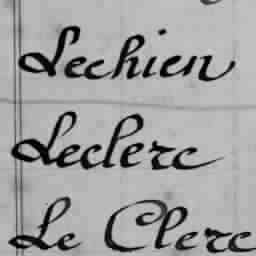 Lechien
Leclerc
Le Clerc